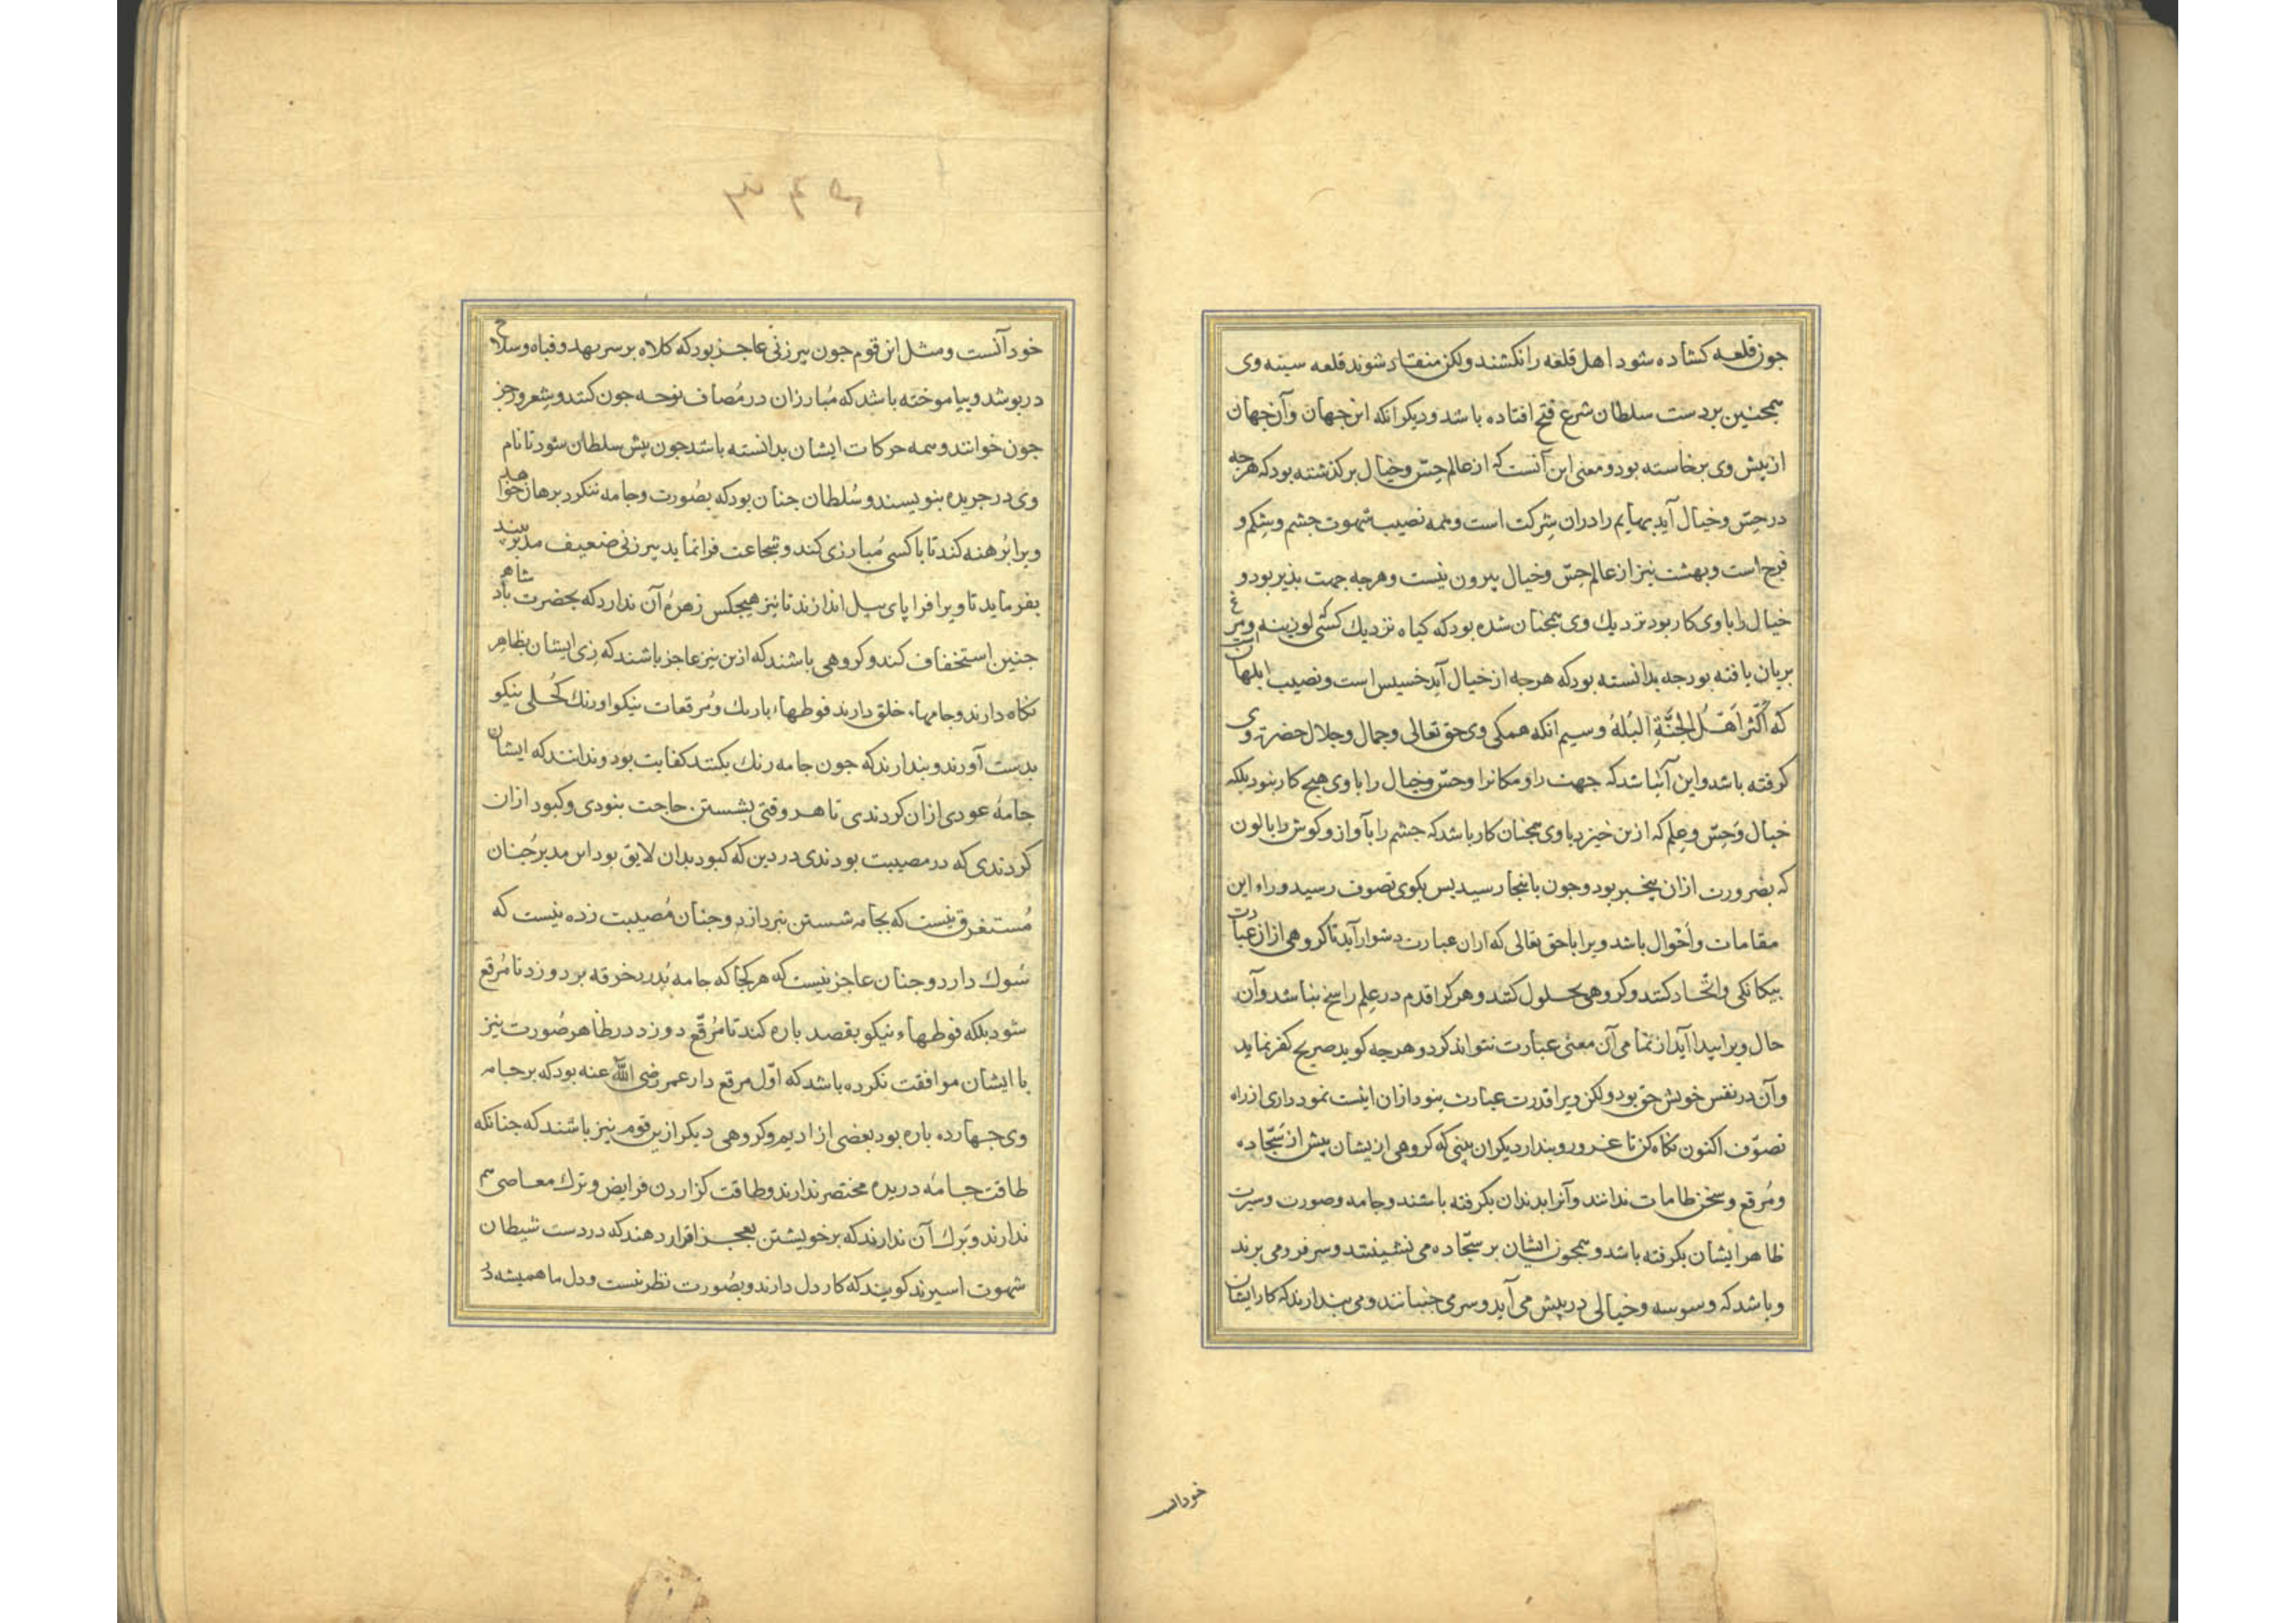 چون قلعه کشاده شود اهل قلعه را نکشند ولکن منقاد شوند قلعه سینه وی
همچنین بر دست سلطان شرع فتح افتاده باشد و دیکر انکه این جهان وآن جهان
از پیش وی برخاسته بود و معنی این آنست که از عالم حِسّ و خیال برکذشته بود که هرچه
در حِسّ و خیال آید بهایم را دران شِرکت است و همه نصیب شهوت جشم و شِکم و
فرج است و بهشت نیز از عالم حِسّ و خیال بیرون نیست و هرجه جهت بذیر بود و
خیال را با وی کار بود نزدیك وی همچنان شده بود که کیاه نزدیك کسی که لوزینه و مرغ
بریان یافته بود جه بدانسته بود که هرجه از خیال آید خسیس است و نصیب ابلهان است
که أکْثَرُ اَهْلُ الجَنَّةِ البُلهُ وسیم انکه همکی وی حق تعالی و جمال و جلال حضرت وی
کرفته باشد و این آنباشد که جهت را و مکانرا و حسّ و خیال را با وی هیچ کار نبود بلکه
خیال و حِسّ و عِلم که ازین خیزد با وی همچنان کار باشد که جشم را بآواز و کوش را بالون
که بضرورت ازان بیخبر بود و جون باینجا رسید بس بکوی تصوف رسید و راء این
مقامات و أحْوال باشد ویرا با حق تعالی که ازان عبارت دشوار آید تا کروهی ازان عبارت
بیکانکی و اتّحاد کنند و کروهی بحلول کنند و هر کرا قدم در عِلم راسخ نباشد و آن
حال ویرا پیدا آید از تمامی آن معنی عبارت نتواند کرد و هرجه کوید صریح کفر نماید
و آن در نفس خویش حق بود ولکن ویرا قدرت عبارت نبود ازان اینست نموداری از راه
تصوّف اکنون نکاه کن تا غرور و بندار دیکران بینی که کروهی ازیشان پیش از سَجّاده
و مُرقع و سخن طامات ندانند و آنرا بدندان بکرفته باشند و جامه و صورت و سیرت
ظاهر ایشان بکرفته باشد و همچون ایشان بر سجّاده می نشینند و سر فرو می برند
و باشد که وسوسه و خیالی در پیش می آید و سر می جنبانند و می بندارند که کار ایشان
خود انست
۳۴۵
خود آنست و مثل این قوم جون پیرزنی عاجز بود که کلاه بر سر نهد و قباه و سلاح
دربوشد و بیاموخته باشد که مُبارزان در مُصاف نوحه جون کنند و شِعر و رجز
جون خوانند و همه حرکات ایشان بدانسته باشد جون پیش سلطان شود تا نام
وی در جریده بنویسند و سُلطان جنان بود که بصُورت و جامه ننکرد برهان خواهد
ویرا بُرهنه کند تا با کسی مُبارزی کند و شجاعت فرا نماید پیرزنی ضعیف مدبر بیند
بفرماید تا ویرا فرا پای پیل اندازند تا نیز هیچکس زهرهٔ آن ندارد که بحضرت بادشاه
جنین استخفاف کند و کروهی باشند که ازین نیز عاجز باشند که زی ایشان بظاهر
نکاه دارند و جامهاء خلق دارند فوطهاء باریك و مُرقعات نیکو اورنك کُحلی نیکو
بدست آورند و بندارند که جون جامه رنك بکنند کفایت بود و ندانند که ایشان
جامهٔ عودی ازان کردندی تا هر وقتی بشستن حاجت نبودی و کبود ازان
کردندی که در مصیبت بودندی در دین که کبود بدان لایق بود این مدبر جُنان
مُستغرق نیست که بجامه شستن نبردازد و جنان مُصیبت زده نیست که
سُوك دارد و جنان عاجز نیست که هر کجا که جامه بُدرد خرقه بر دوزد تا مُرقع
شود بلکه فوطهاء نیکو بقصد باره کند تا مُرقّع دوزد در ظاهر صُورت نیز
با ایشان موافقت نکرده باشد که اوّل مرقع دار عمر رضی الله عنه بود که بر جامه
وی جهارده باره بود بعضی از ادیم و کروهی دیکر ازین قوم نیز باشند که جنانکه
طاقت جامهٔ دریده مختصر ندارند و طاقت کزاردن فرایض و ترك معاصی هم
ندارند و بَرك آن ندارند که بر خویشتن بعجز اقرار دهند که در دست شیطان
شهوت اسیرند کویند که کار دل دارند و بصُورت نظر نیست و دل ما همیشه در